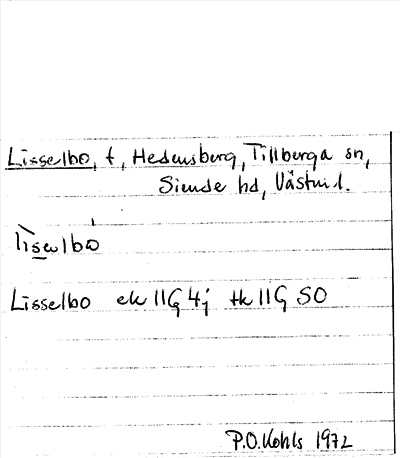 Lisselbo, t, Hedensberg, Tillberga sn,
Siende hd, Västml.
lìse̲lbo
Lisselbo ek 11G 4j tk 11G SO
P.O. Kohls 1972